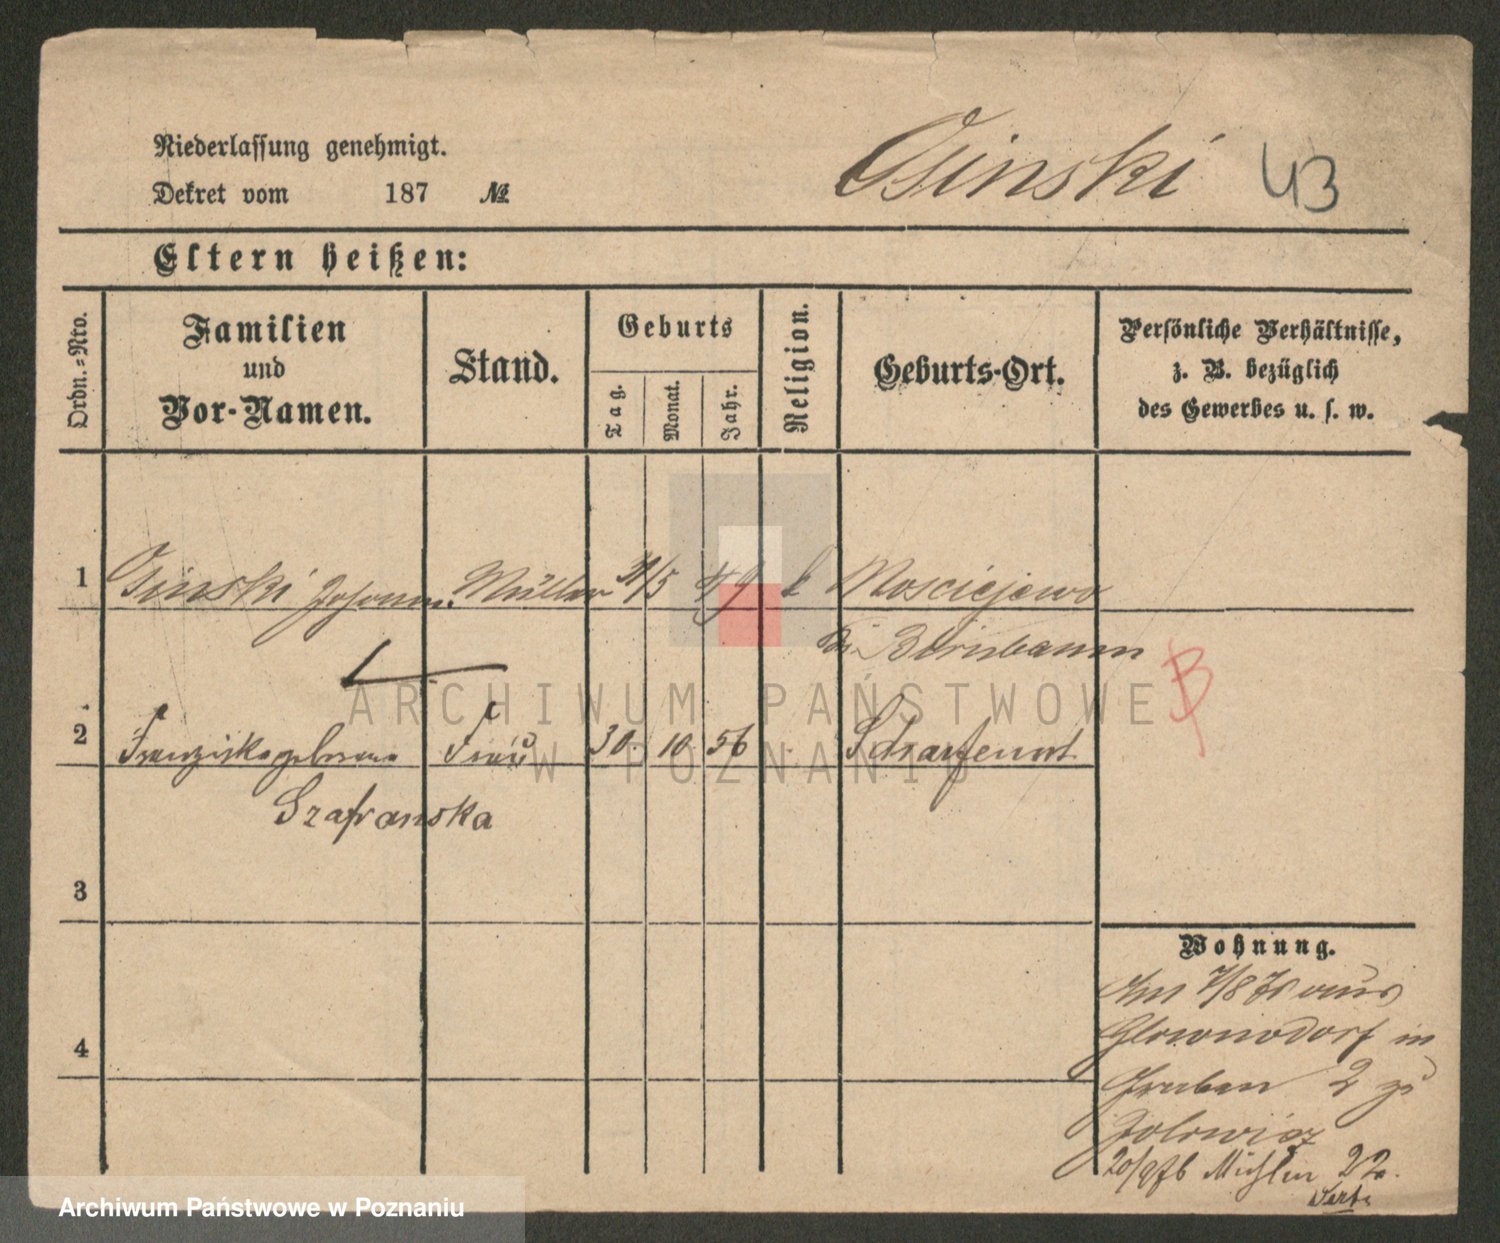 Niederlassung genehmigt.
Dekret vom 187 №
Osinski 43
Eltern heißen:
Ordn.=Nro.
Familien
und
Vor-Namen.
Stand.
Geburts
Tag.
Monat.
Jahr.
Religion.
Geburts-Ort.
Persönliche Verhältnisse,
z. B. bezüglich
des Gewerbes u. s. w.
1 Osinski Johann Müller k Mosciejewo
Birnbaum
B
2 Franziska geborene Frau 30. 10. 56 Scharfenort
Szafranska
3
Wohnung.
Am 7/8 aus
Glownodorf in
4
Graben 2 zu
Mühlen 22.
ARCHIWUM PAŃSTWOWE
W POZNANIU
Archiwum Państwowe w Poznaniu